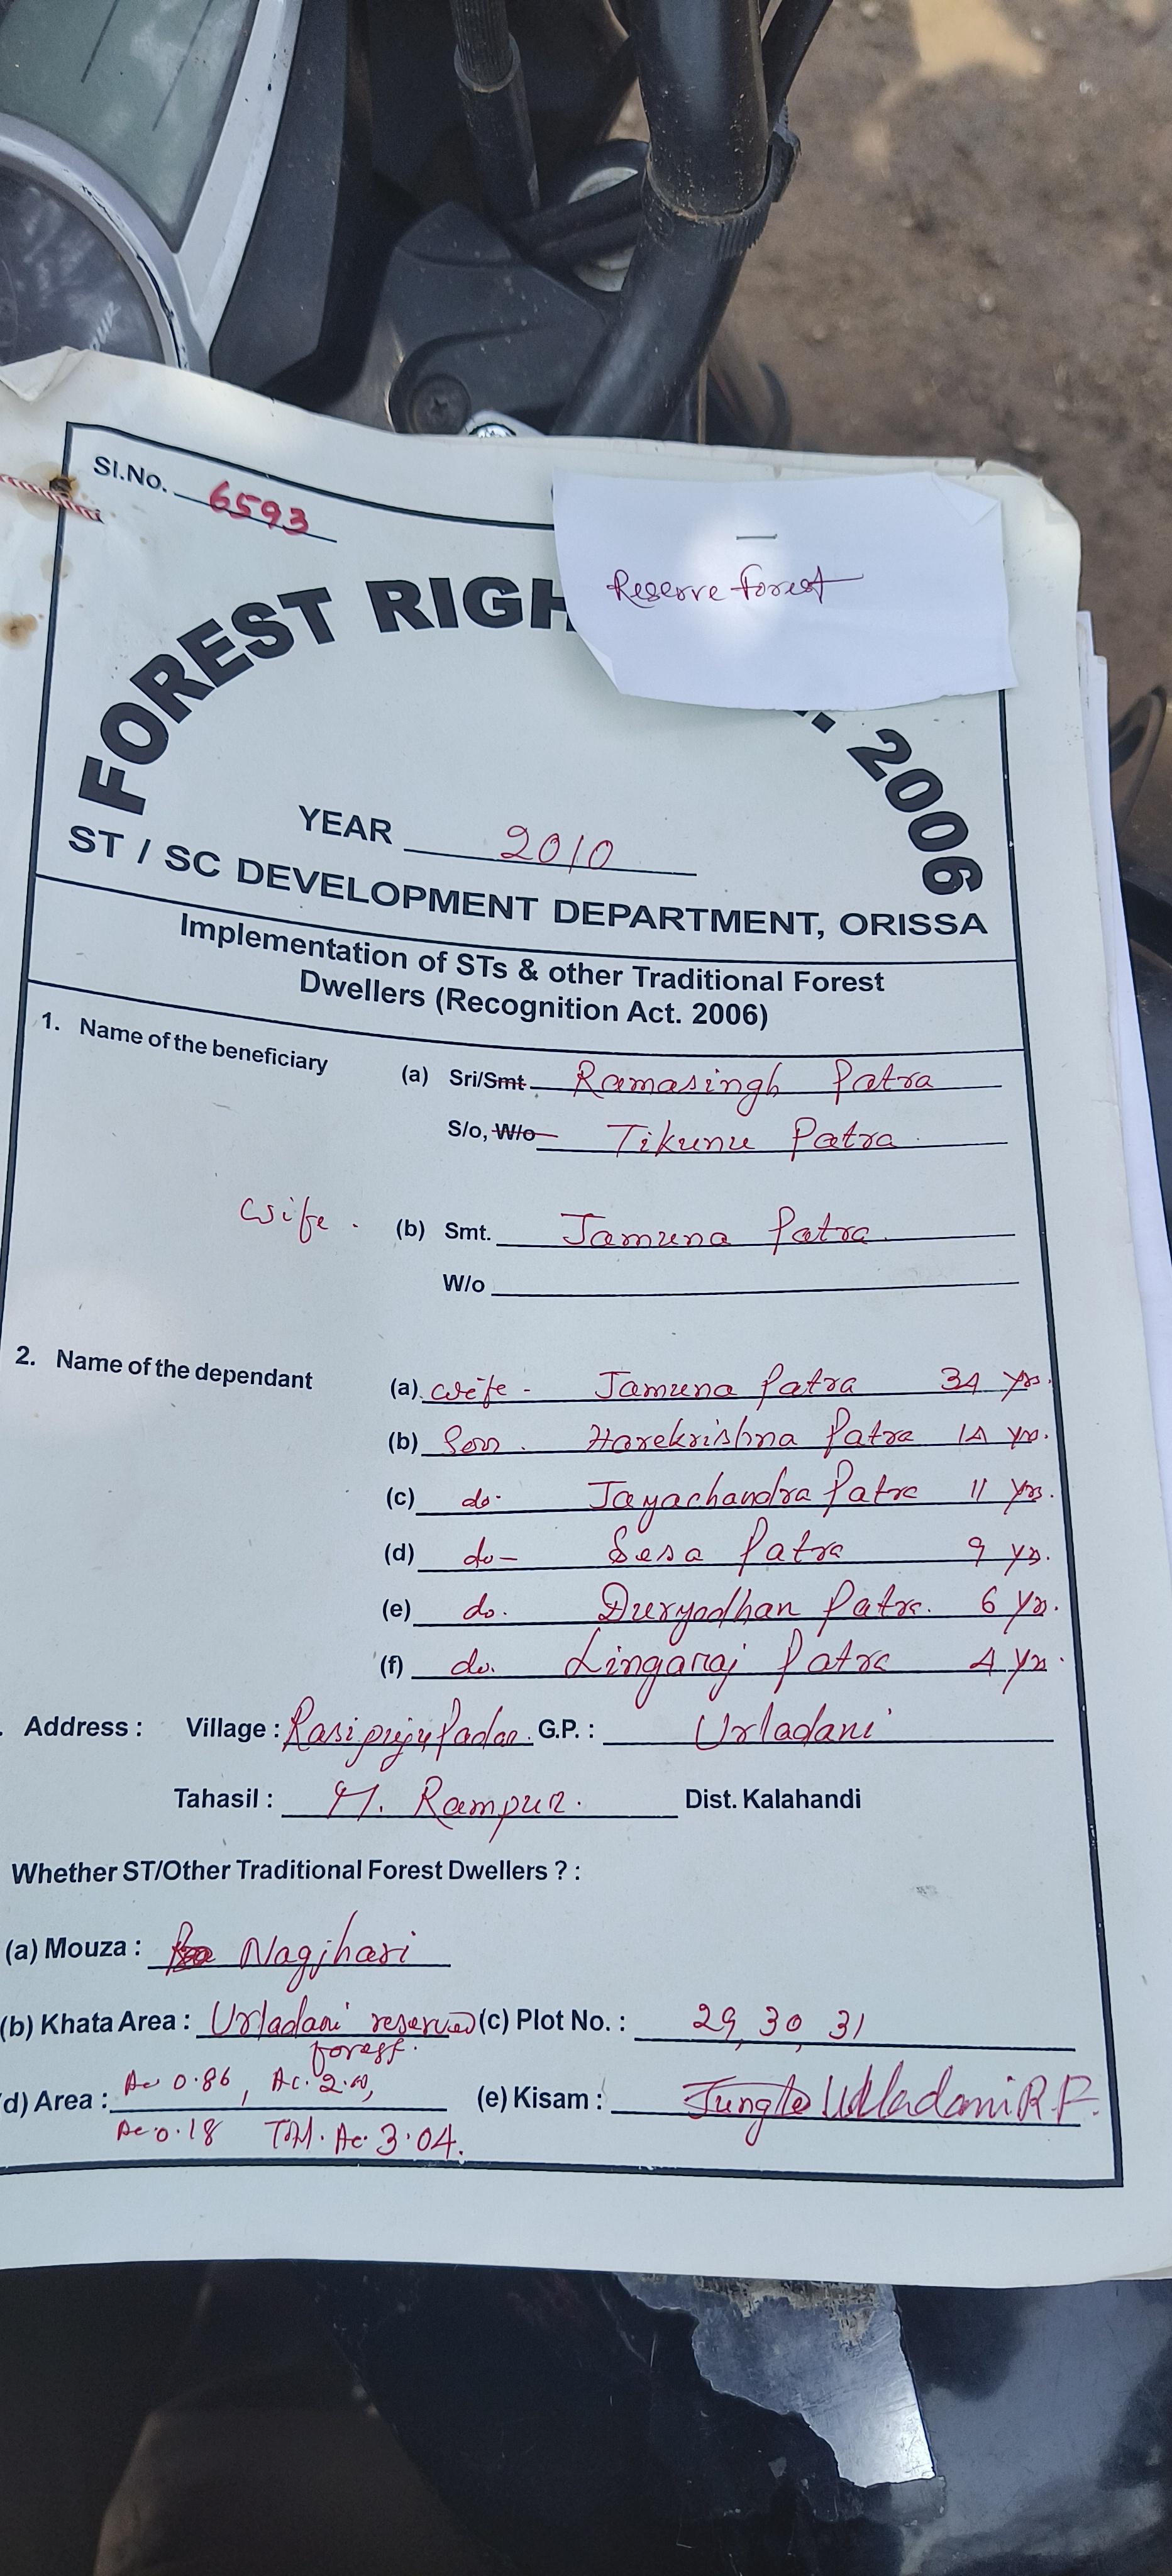 Sl.No. 6593
Reserve forest
FOREST RIGH
. 2006
YEAR 2010
ST / SC DEVELOPMENT DEPARTMENT, ORISSA
Implementation of STs & other Traditional Forest
Dwellers (Recognition Act. 2006)
1. Name of the beneficiary (a) Sri/Smt. Ramasingh Patra
S/o, W/o Tikunu Patra
wife. (b) Smt. Jamuna Patra
W/o
2. Name of the dependant (a) wife - Jamuna Patra 34 yrs.
(b) Son. Harekrishna Patra 14 yrs.
(c) do. Jayachandra Patra 11 yrs.
(d) do - Sesa Patra 9 yrs.
(e) do. Duryodhan Patra. 6 yrs.
(f) do. Lingaraj Patra 4 yrs.
. Address : Village : G.P. : Urladani
Tahasil : M. Rampur. Dist. Kalahandi
Whether ST/Other Traditional Forest Dwellers ? :
(a) Mouza : Nagjhari
(b) Khata Area : Urladani reserved forest. (c) Plot No. : 29, 30, 31
d) Area : Ac 0.86, Ac. 2.00, (e) Kisam : Jungle Urladani R.F.
Ac 0.18 Total. Ac. 3.04.